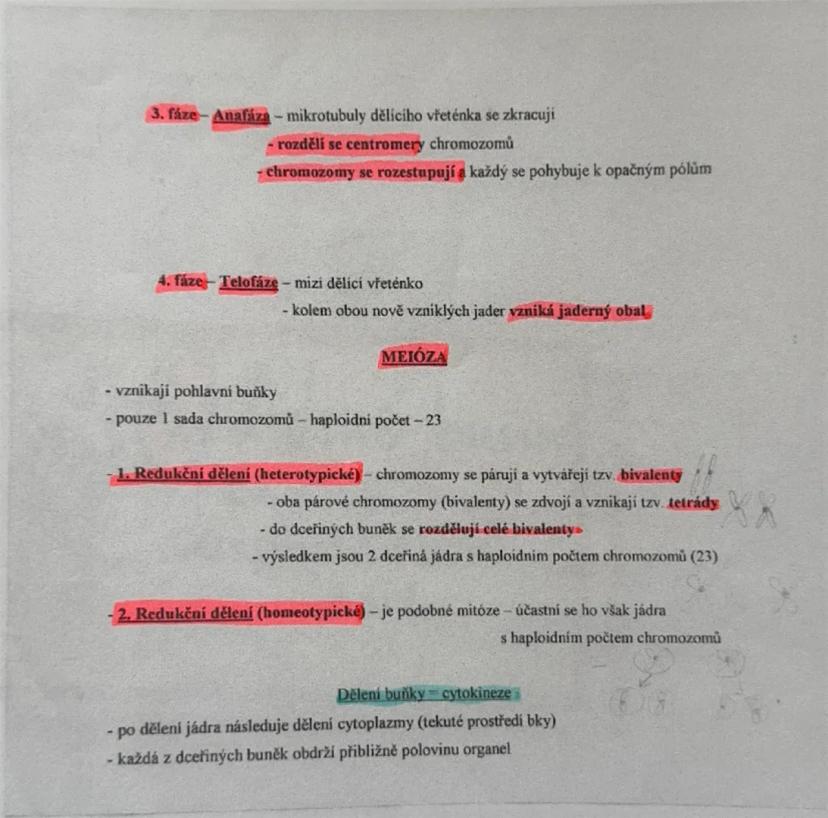 3. fáze – Anafáza – mikrotubuly dělícího vřeténka se zkracují
- rozdělí se centromery chromozomů
- chromozomy se rozestupují a každý se pohybuje k opačným pólům
4. fáze – Telofáze – mizí dělící vřeténko
- kolem obou nově vzniklých jader vzniká jaderný obal
MEIÓZA
- vznikají pohlavní buňky
- pouze 1 sada chromozomů – haploidní počet – 23
- 1. Redukční dělení (heterotypické) – chromozomy se párují a vytvářejí tzv. bivalenty
- oba párové chromozomy (bivalenty) se zdvojí a vznikají tzv. tetrády
- do dceřiných buněk se rozdělují celé bivalenty
- výsledkem jsou 2 dceřiná jádra s haploidním počtem chromozomů (23)
- 2. Redukční dělení (homeotypické) – je podobné mitóze – účastní se ho však jádra
s haploidním počtem chromozomů
Dělení buňky = cytokineze
- po dělení jádra následuje dělení cytoplazmy (tekuté prostředí bky)
- každá z dceřiných buněk obdrží přibližně polovinu organel